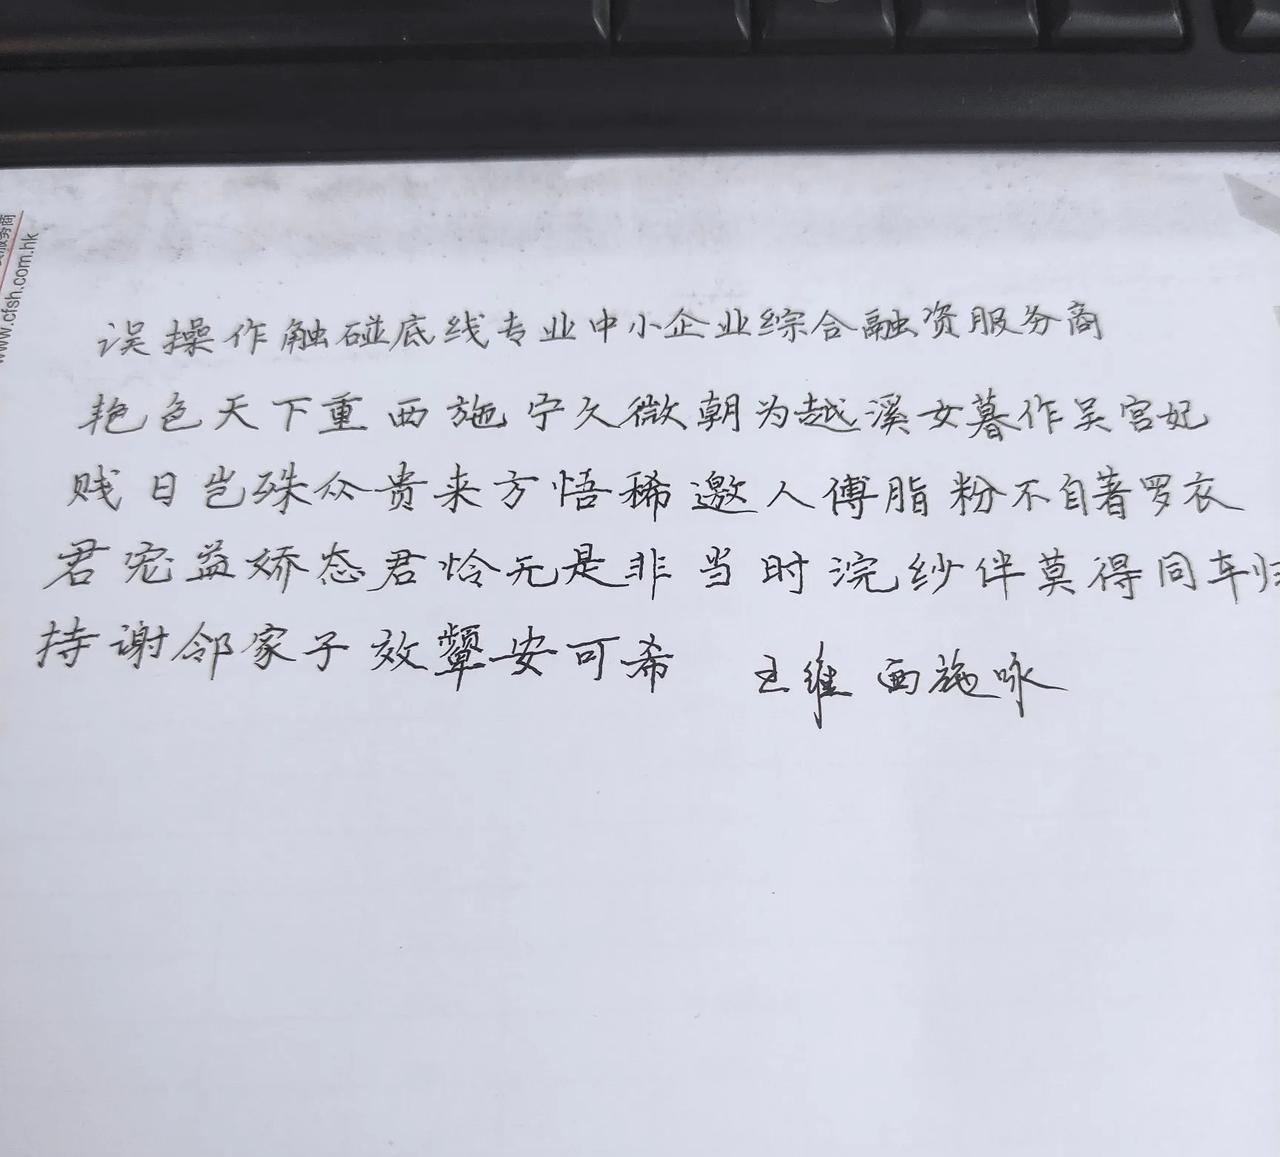 服务商
www.cfsh.com.hk
误操作触碰底线专业中小企业综合融资服务商
艳色天下重西施宁久微朝为越溪女暮作吴宫妃
贱日岂殊众贵来方悟稀邀人傅脂粉不自著罗衣
君宠益娇态君怜无是非当时浣纱伴莫得同车归
持谢邻家子效颦安可希 王维 西施咏